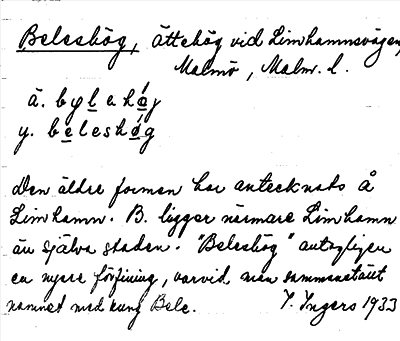 Beleshög, ättehög vid Limhamnsvägen,
Malmö, Malm. l.
ä. bylehöj
y. beleshög
Den äldre formen har antecknats å
Limhamn. B. ligger närmare Limhamn
än själva staden. "Beleshög" antagligen
en nyare förfining, varvid man sammanställt
namnet med kung Bele. I. Ingers 1933